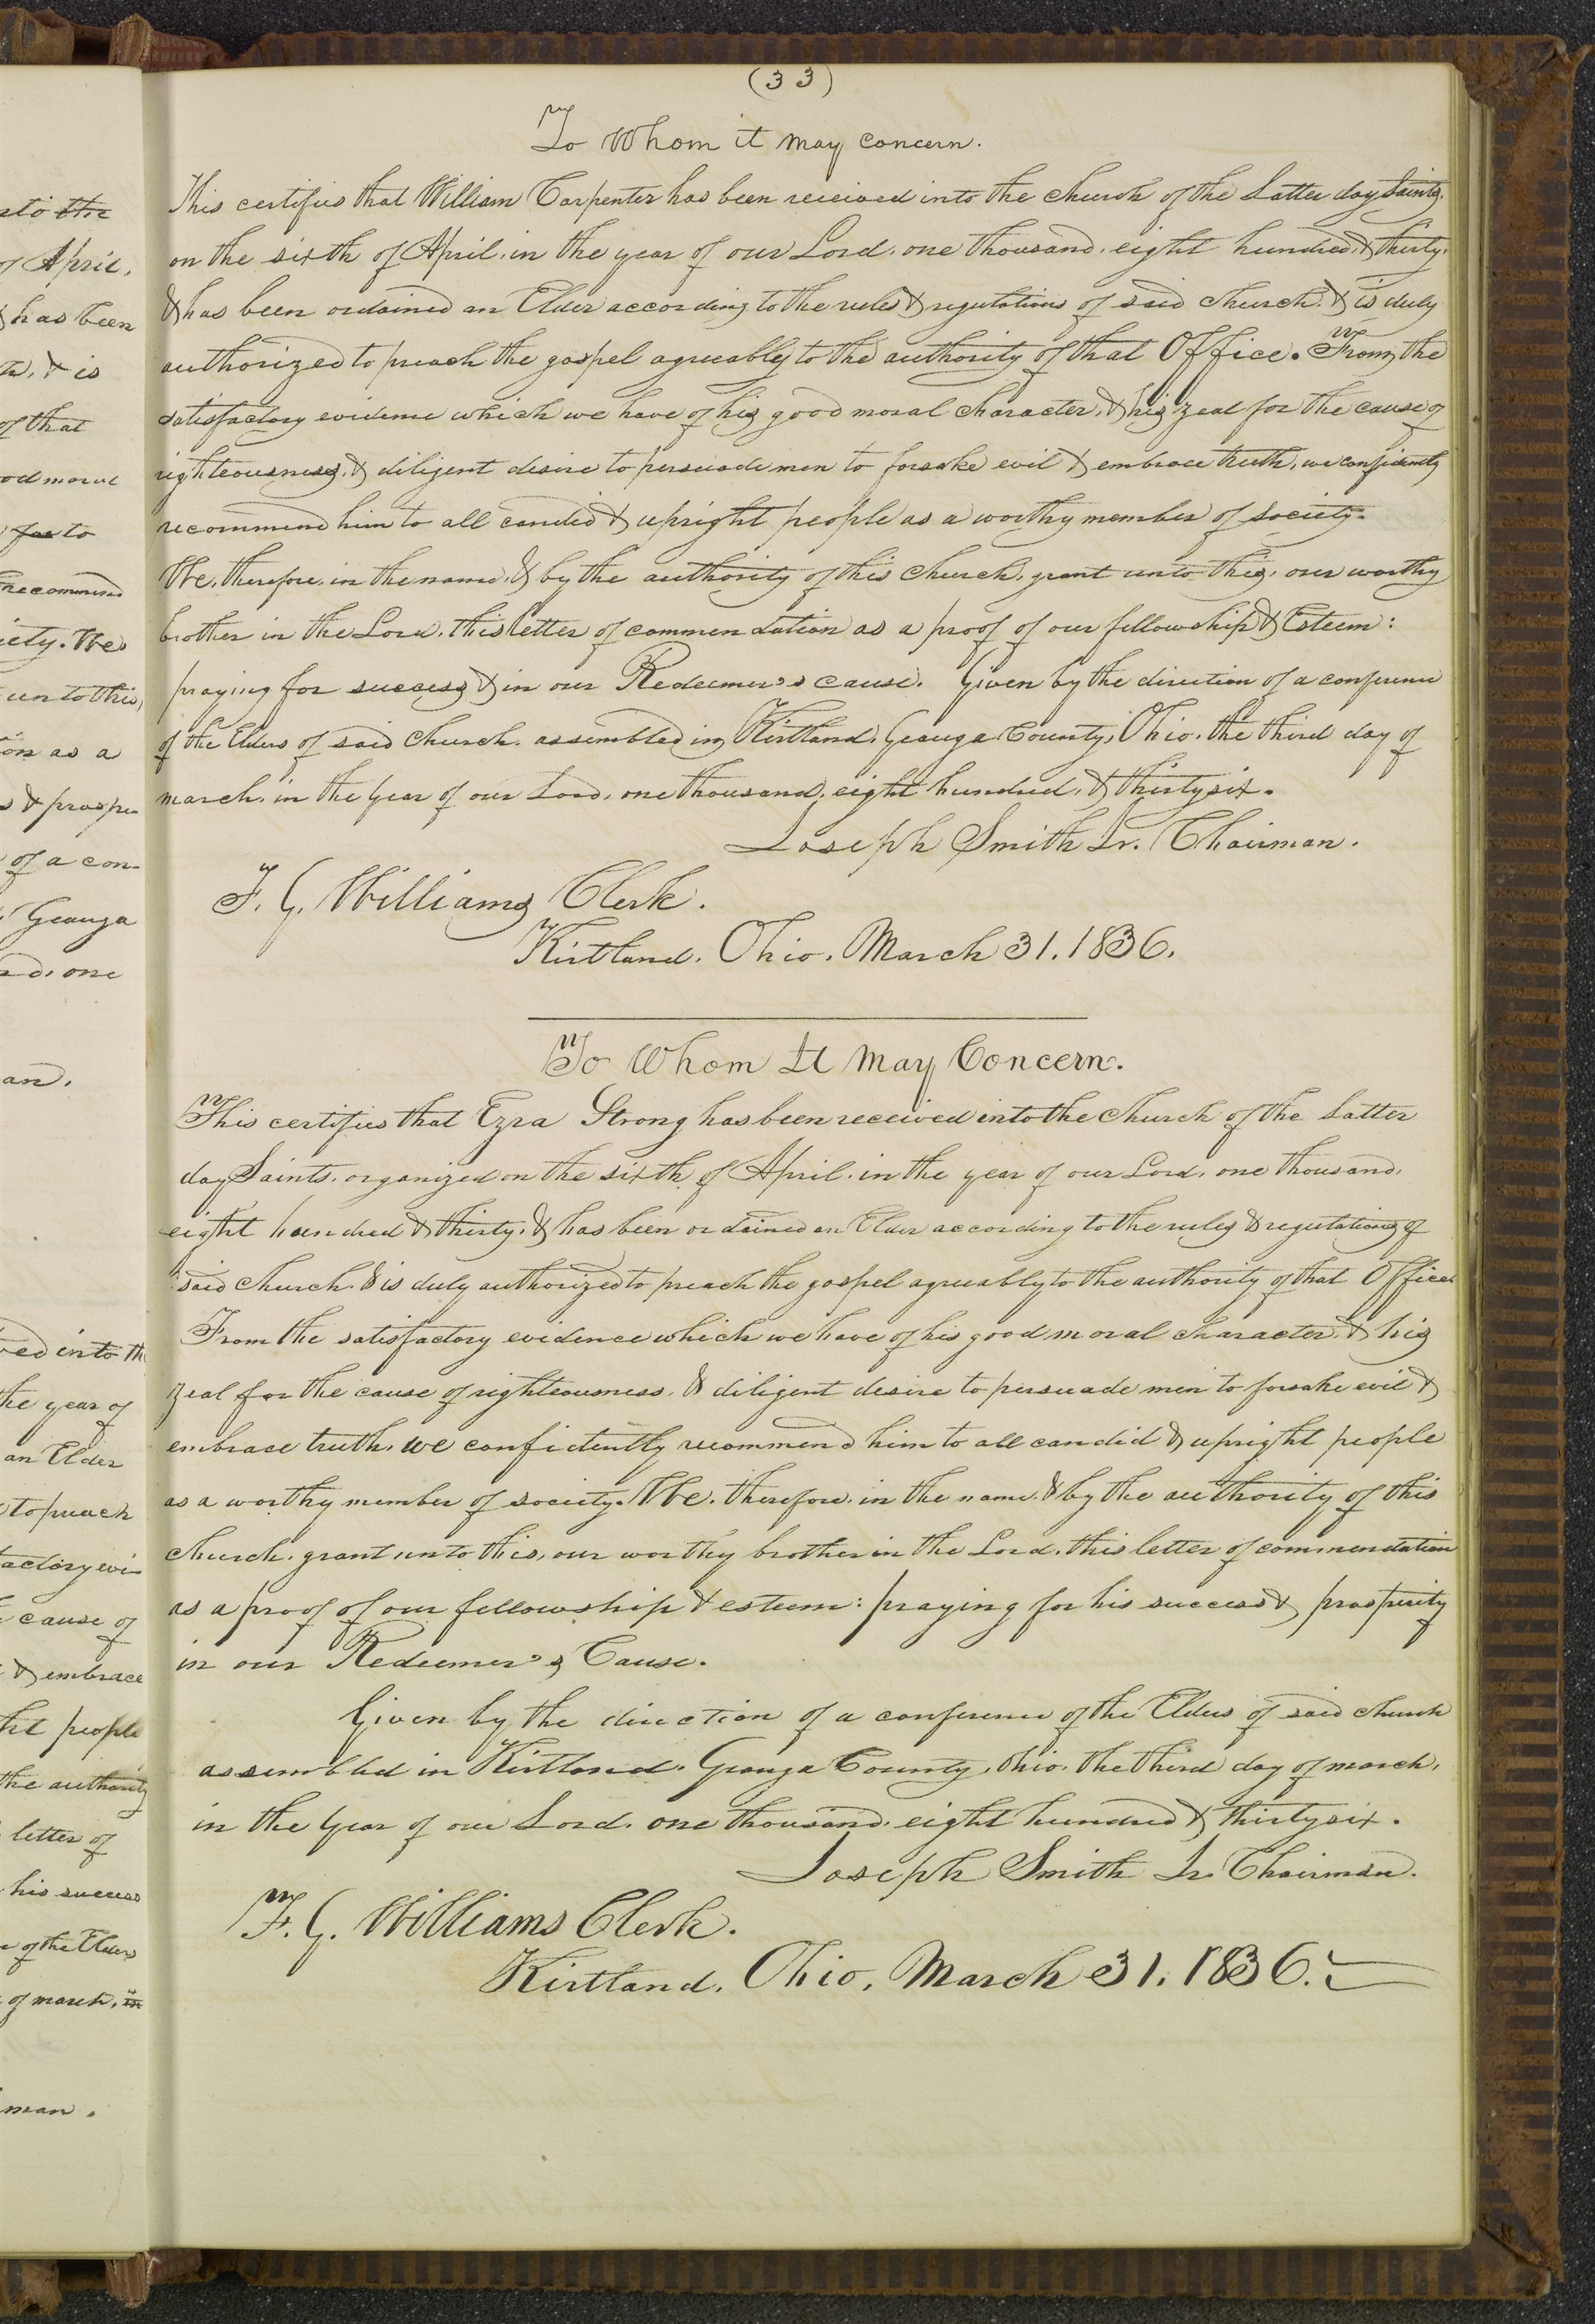 (33)
To Whom it may concern.
This certifies that William Carpenter has been received into the church of the Latter day Saints,
on the sixth of April, in the year of our Lord, one thousand, eight hundred, & thirty,
& has been ordained an Elder according to the rules & regulations of said church, & is duly
authorized to preach the gospel agreeably to the authority of that Office. From the
satisfactory evidence which we have of his good moral character, & his zeal for the cause of
righteousness, & diligent desire to persuade men to forsake evil & embrace truth, we confidently
recommend him to all candid & upright people as a worthy member of society.
We, therefore, in the name, & by the authority of this church, grant unto this, our worthy
brother in the Lord, this letter of commendation as a proof of our fellowship & Esteem:
praying for success & in our Redeemer's cause. Given by the direction of a conference
of the Elders of said church, assembled in Kirtland, Geauga County, Ohio, the third day of
march, in the year of our Lord, one thousand, eight hundred, & thirty six.
Joseph Smith Jr. Chairman.
F. G. Williams Clerk.
Kirtland, Ohio, March 31, 1836.
To Whom It May Concern.
This certifies that Ezra Strong has been received into the church of the Latter
day Saints, organized on the sixth of April, in the year of our Lord, one thousand,
eight hundred & thirty, & has been ordained an Elder according to the rules & regulations of
said church, & is duly authorized to preach the gospel agreeably to the authority of that Office.
From the satisfactory evidence which we have of his good moral character, & his
zeal for the cause of righteousness, & diligent desire to persuade men to forsake evil &
embrace truth, we confidently recommend him to all candid & upright people
as a worthy member of society. We, therefore, in the name, & by the authority of this
church, grant unto this, our worthy brother in the Lord, this letter of commendation
as a proof of our fellowship & esteem: praying for his success & prosperity
in our Redeemer's Cause.
Given by the direction of a conference of the Elders of said church
assembled in Kirtland, Geauga County, Ohio, the third day of march,
in the year of our Lord, one thousand, eight hundred & thirty six.
Joseph Smith Jr. Chairman.
F. G. Williams Clerk.
Kirtland, Ohio, March 31, 1836.